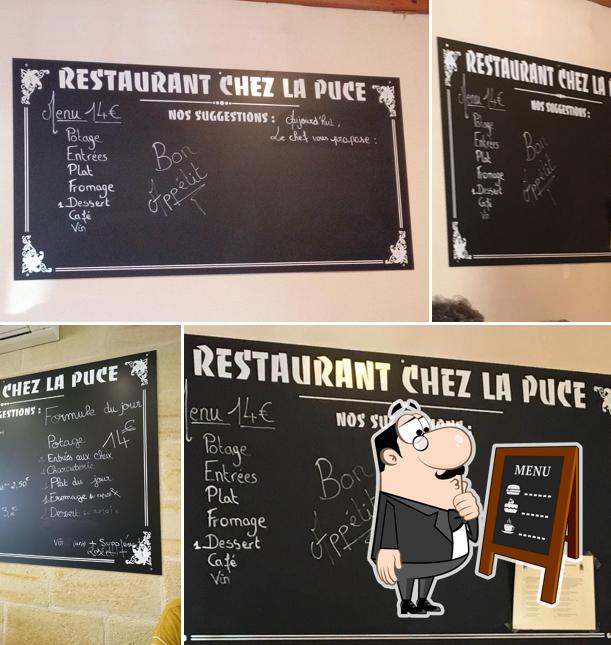 RESTAURANT CHEZ LA PUCE
Menu 14€
NOS SUGGESTIONS : Aujourd'hui,
Le chef vous propose :
Potage
Entrées
Plat
Fromage
1 Dessert
Café
Vin
Bon
Appétit
RESTAURANT CHEZ LA
Menu 14€
NOS SUGGESTIONS :
Potage
Entrées
Plat
Fromage
1 Dessert
Café
Vin
Bon
Appétit
CHEZ LA PUCE
GESTIONS : Formule du jour
14€
Potage
Entrées aux choix
Charcuterie
Plat du jour
1 Fromage
Dessert
2.50€
+ Supplément
RESTAURANT CHEZ LA PUCE
enu 14€
NOS
Potage
Entrées
Plat
Fromage
1 Dessert
Café
Vin
Bon
Appétit
MENU